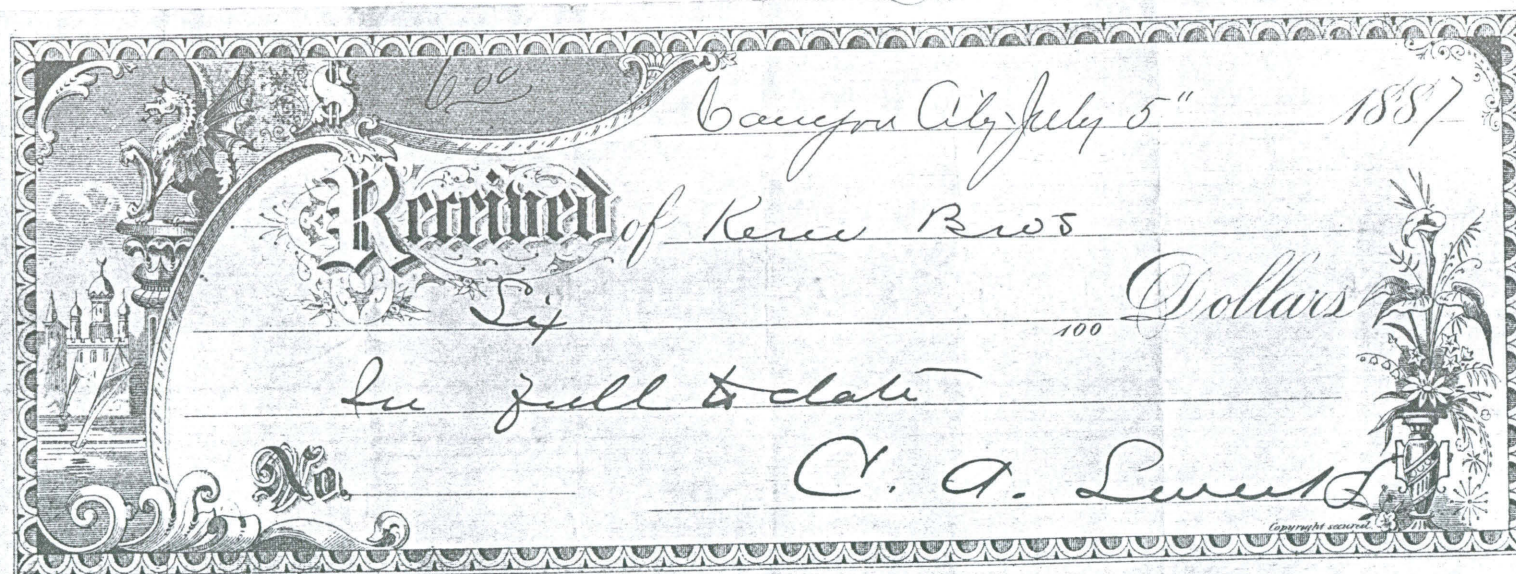 $ 6.00
Canyon City July 5" 1887
Received of Bros
Six 100 Dollars
In full to date
No. C. A.
Copyright secured